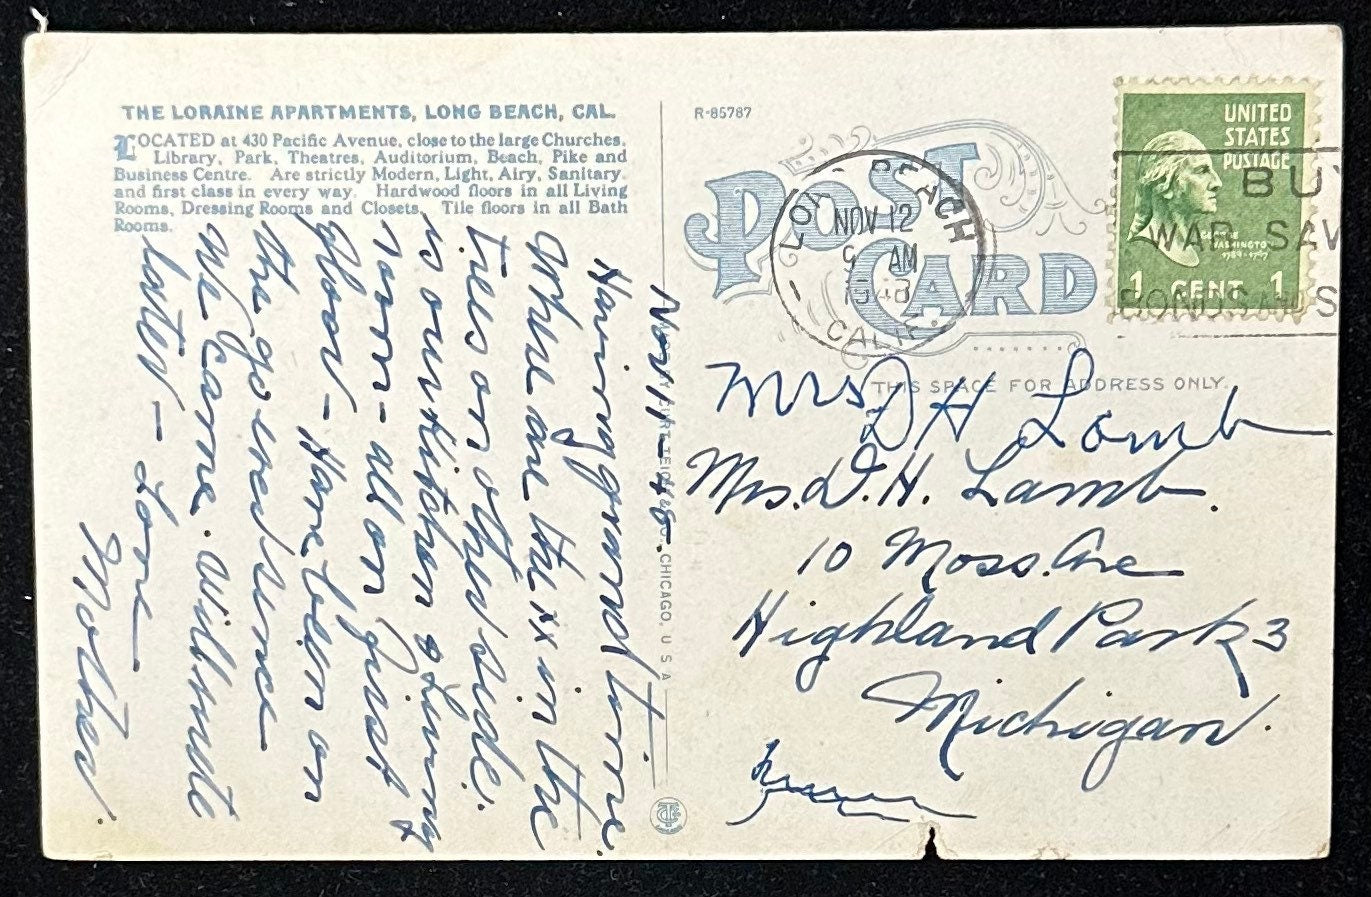 THE LORAINE APARTMENTS, LONG BEACH, CAL.
LOCATED at 430 Pacific Avenue, close to the large Churches,
Library, Park, Theatres, Auditorium, Beach, Pike and
Business Centre. Are strictly Modern, Light, Airy, Sanitary,
and first class in every way. Hardwood floors in all Living
Rooms, Dressing Rooms and Closets. Tile floors in all Bath
Rooms.
Nov 11-46.
Having grand time.
Where are the xx in the
trees on other side.
is our Kitchen & Living
room - all on first
floor - Have been on
the go ever since
we came. Will write
later - Love
Mother.
CURT TEICH & CO., CHICAGO, U. S. A.
R-85787
POST CARD
BEACH
NOV 12
9 AM
CALIF.
UNITED
STATES
POSTAGE
GEORGE
WASHINGTON
1789-1797
1 CENT 1
BUY
WAR SAV
BONDS AND S
THIS SPACE FOR ADDRESS ONLY.
Mrs D H Lamb
Mrs. D. H. Lamb.
10 Moss Ave
Highland Park 3
Michigan.